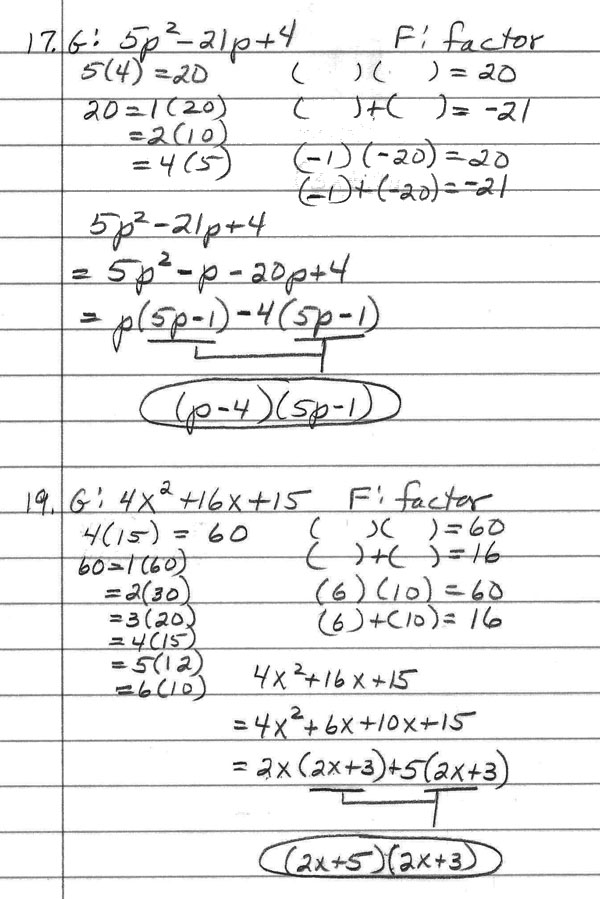 17. G: 5p²-21p+4 F: factor
5(4) = 20 ( )( ) = 20
20 = 1(20) ( )+( ) = -21
= 2(10)
= 4(5) (-1)(-20) = 20
(-1)+(-20) = -21
5p²-21p+4
= 5p²-p-20p+4
= p(5p-1)-4(5p-1)
(p-4)(5p-1)
19. G: 4x²+16x+15 F: factor
4(15) = 60 ( )( ) = 60
60=1(60) ( )+( ) = 16
=2(30) (6)(10) = 60
=3(20) (6)+(10) = 16
=4(15)
=5(12)
=6(10) 4x²+16x+15
=4x²+6x+10x+15
=2x(2x+3)+5(2x+3)
(2x+5)(2x+3)